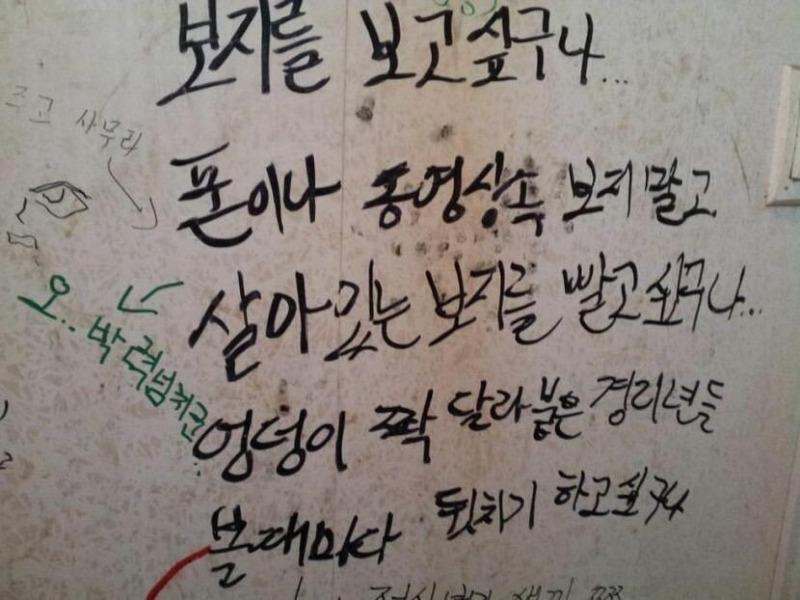 보지를 보고싶구나...
죽고 사무라
폰이나 동영상속 보지말고
살아있는 보지를 빨고싶구나...
오.. 박력넘치군..
엉덩이 짝 달라붙은 경리년들
볼때마다 뒷치기 하고싶구나